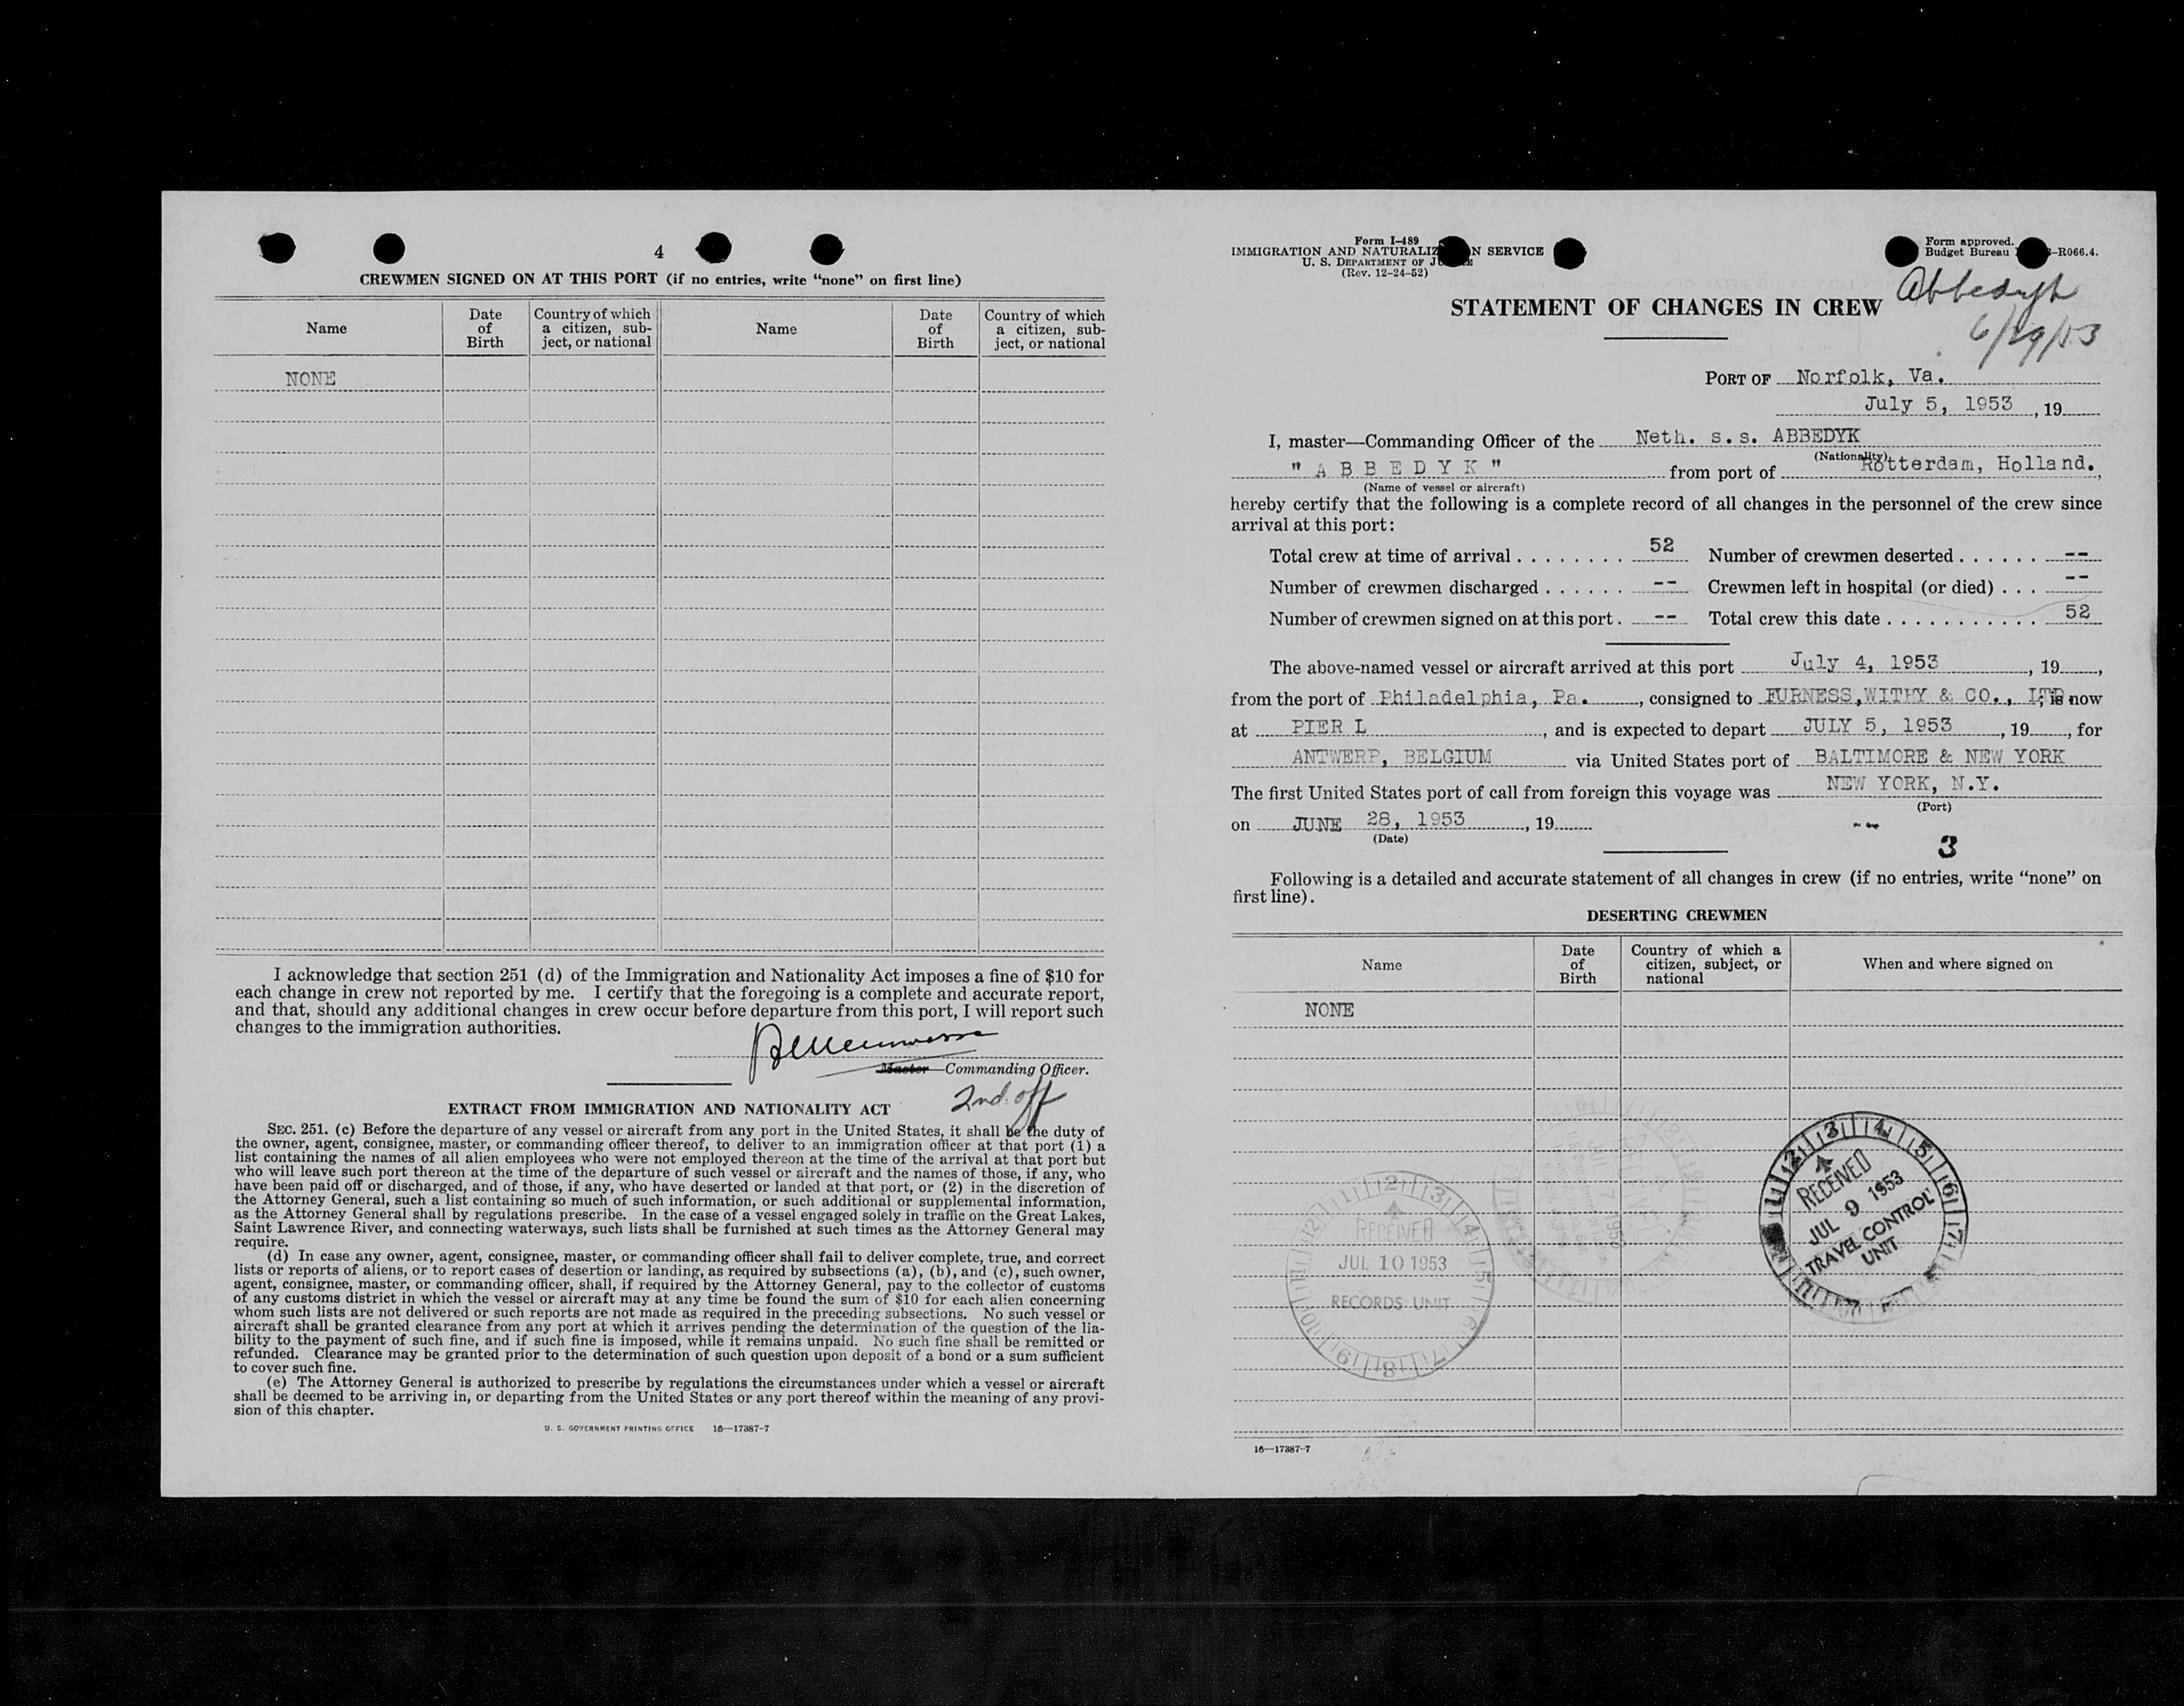 4
CREWMEN SIGNED ON AT THIS PORT (if no entries, write “none” on first line)
Name
Date of Birth
Country of which a citizen, sub-ject, or national
Name
Date of Birth
Country of which a citizen, sub-ject, or national
NONE
I acknowledge that section 251 (d) of the Immigration and Nationality Act imposes a fine of $10 for
each change in crew not reported by me. I certify that the foregoing is a complete and accurate report,
and that, should any additional changes in crew occur before departure from this port, I will report such
changes to the immigration authorities.
Master—Commanding Officer.
2nd. off
EXTRACT FROM IMMIGRATION AND NATIONALITY ACT
SEC. 251. (c) Before the departure of any vessel or aircraft from any port in the United States, it shall be the duty of
the owner, agent, consignee, master, or commanding officer thereof, to deliver to an immigration officer at that port (1) a
list containing the names of all alien employees who were not employed thereon at the time of the arrival at that port but
who will leave such port thereon at the time of the departure of such vessel or aircraft and the names of those, if any, who
have been paid off or discharged, and of those, if any, who have deserted or landed at that port, or (2) in the discretion of
the Attorney General, such a list containing so much of such information, or such additional or supplemental information,
as the Attorney General shall by regulations prescribe. In the case of a vessel engaged solely in traffic on the Great Lakes,
Saint Lawrence River, and connecting waterways, such lists shall be furnished at such times as the Attorney General may
require.
(d) In case any owner, agent, consignee, master, or commanding officer shall fail to deliver complete, true, and correct
lists or reports of aliens, or to report cases of desertion or landing, as required by subsections (a), (b), and (c), such owner,
agent, consignee, master, or commanding officer, shall, if required by the Attorney General, pay to the collector of customs
of any customs district in which the vessel or aircraft may at any time be found the sum of $10 for each alien concerning
whom such lists are not delivered or such reports are not made as required in the preceding subsections. No such vessel or
aircraft shall be granted clearance from any port at which it arrives pending the determination of the question of the lia-
bility to the payment of such fine, and if such fine is imposed, while it remains unpaid. No such fine shall be remitted or
refunded. Clearance may be granted prior to the determination of such question upon deposit of a bond or a sum sufficient
to cover such fine.
(e) The Attorney General is authorized to prescribe by regulations the circumstances under which a vessel or aircraft
shall be deemed to be arriving in, or departing from the United States or any port thereof within the meaning of any provi-
sion of this chapter.
U. S. GOVERNMENT PRINTING OFFICE 16—17387-7
Form I-489
IMMIGRATION AND NATURALIZ N SERVICE
U. S. DEPARTMENT OF J E
(Rev. 12-24-52)
Form approved.
Budget Bureau -R066.4.
Abbedyk
6/29/53
STATEMENT OF CHANGES IN CREW
PORT OF Norfolk, Va.
July 5, 1953, 19
I, master—Commanding Officer of the Neth. s.s. ABBEDYK
(Nationality)
"ABBEDYK" from port of Rotterdam, Holland.,
(Name of vessel or aircraft)
hereby certify that the following is a complete record of all changes in the personnel of the crew since
arrival at this port:
Total crew at time of arrival . . . . . . . . 52 Number of crewmen deserted . . . . . . --
Number of crewmen discharged . . . . . . -- Crewmen left in hospital (or died) . . . --
Number of crewmen signed on at this port . -- Total crew this date . . . . . . . . . . . 52
The above-named vessel or aircraft arrived at this port July 4, 1953, 19,
from the port of Philadelphia, Pa., consigned to FURNESS,WITHY & CO., LTD.; is now
at PIER L, and is expected to depart JULY 5, 1953, 19, for
ANTWERP, BELGIUM via United States port of BALTIMORE & NEW YORK
The first United States port of call from foreign this voyage was NEW YORK, N.Y.
(Port)
on JUNE 28, 1953, 19 --
(Date)
3
Following is a detailed and accurate statement of all changes in crew (if no entries, write “none” on
first line).
DESERTING CREWMEN
Name
Date of Birth
Country of which a citizen, subject, or national
When and where signed on
NONE
RECEIVED
JUL 9 1953
TRAVEL CONTROL
UNIT
RECEIVED
JUL 10 1953
RECORDS UNIT
16—17387-7